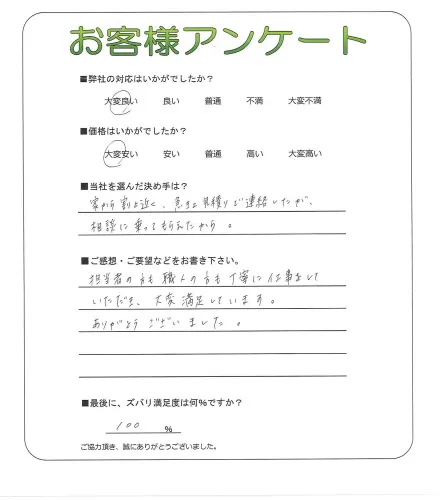 お客様アンケート
■弊社の対応はいかがでしたか?
大変良い 良い 普通 不満 大変不満
■価格はいかがでしたか?
大変安い 安い 普通 高い 大変高い
■当社を選んだ決め手は?
家から割と近く、急きょ見積りご連絡したが、
相談に乗ってもらえたから。
■ご感想・ご要望などをお書き下さい。
担当者の方も職人の方も丁寧に仕事をして
いただき、大変満足しています。
ありがとうございました。
■最後に、ズバリ満足度は何%ですか?
100 %
ご協力頂き、誠にありがとうございました。